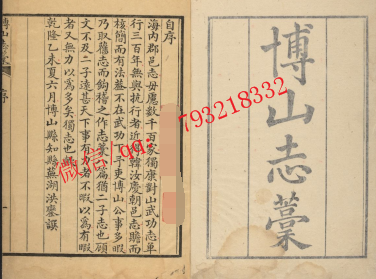 博山志藁
自序
海內郡邑志毋慮數千百家獨康對山武功志單
行三百年無與抗行者近
韓汝慶朝邑志贍而
核簡而有法蓋不
武功
乎吏博山公事多暇
乃取舊志而鉤稽之作志藁
猶二子志也顧
文不及二子遠甚天下事有力者不暇以為有暇
者又無力以為多矣獨志也
乾隆乙未夏六月博山縣知縣蕪湖洪鑾譔
博山志藁
序
微信 qq: 793218332